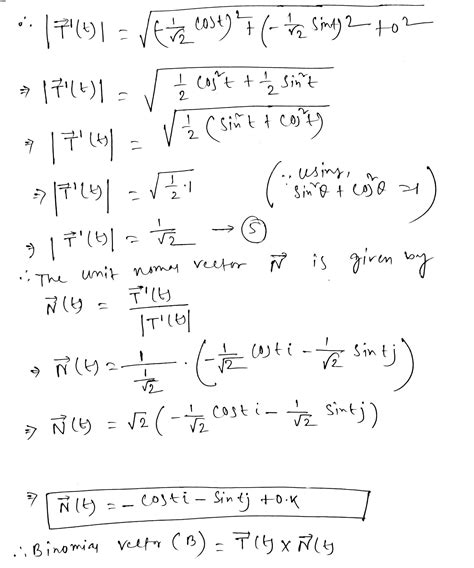 ∴ |T⃗'(t)| = √((-1/√2 cost)² + (-1/√2 sint)² + 0²
⇒ |T⃗'(t)| = √(1/2 cos²t + 1/2 sin²t
⇒ |T⃗'(t)| = √(1/2 (sin²t + cos²t)
⇒ |T⃗'(t)| = √(1/2·1 (∵ using, sin²θ + cos²θ = 1)
⇒ |T⃗'(t)| = 1/√2 → ⑤
∴ The unit normal vector N⃗ is given by
N⃗(t) = T⃗'(t) / |T'(t)|
⇒ N⃗(t) = 1/(1/√2) · (-1/√2 cost i - 1/√2 sint j)
⇒ N⃗(t) = √2 (-1/√2 cost i - 1/√2 sint j)
⇒ N⃗(t) = - cost i - sint j + 0.K
∴ Binomial vector (B) = T⃗(t) × N⃗(t)